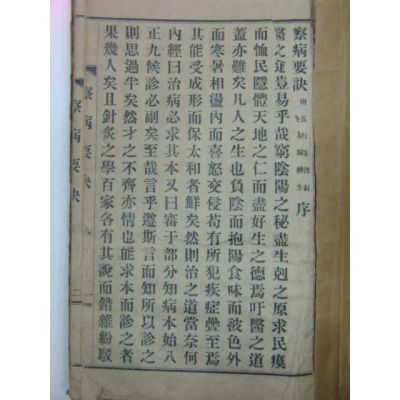 察病要訣 序
醫之道豈易乎哉窮陰陽之秘盡生剋之原求民瘼
而恤民隱體天地之仁而盡好生之德焉吁醫之道
蓋亦難矣凡人之生也負陰而抱陽食味而被色外
而寒暑相盪內而喜怒交侵苟有所犯疾症疊至焉
其能受成形而保太和者鮮矣然則治之道當奈何
內經曰治病必求其本又曰審于部分知病本始八
正九候診必副矣至哉言乎遵斯言而知所以診之
則思過半矣然才之不齊亦情也能求本而診之者
果幾人矣且針炙之學百家各有其說而錯雜紛駁
察病要訣